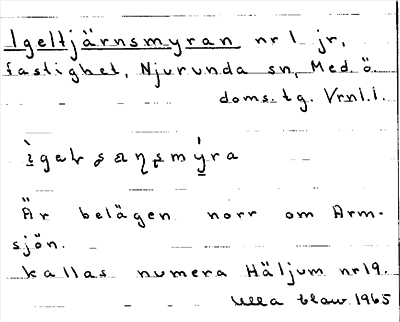 Igeltjärnsmyran nr 1 jr,
fastighet, Njurunda sn, Med. ö.
doms. tg. Vrnl.l.
Är belägen norr om Arm-
sjön.
Kallas numera Häljum nr 19.
Ulla 1965